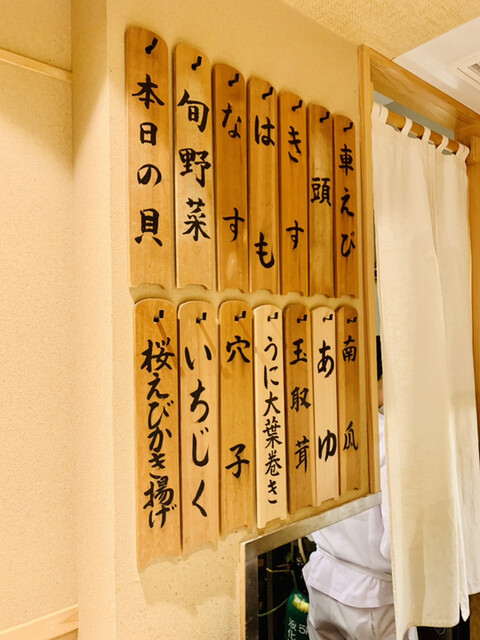 車えび
頭
きす
はも
なす
旬野菜
本日の貝
南瓜
あゆ
玉取茸
うに大葉巻き
穴子
いちじく
桜えびかき揚げ